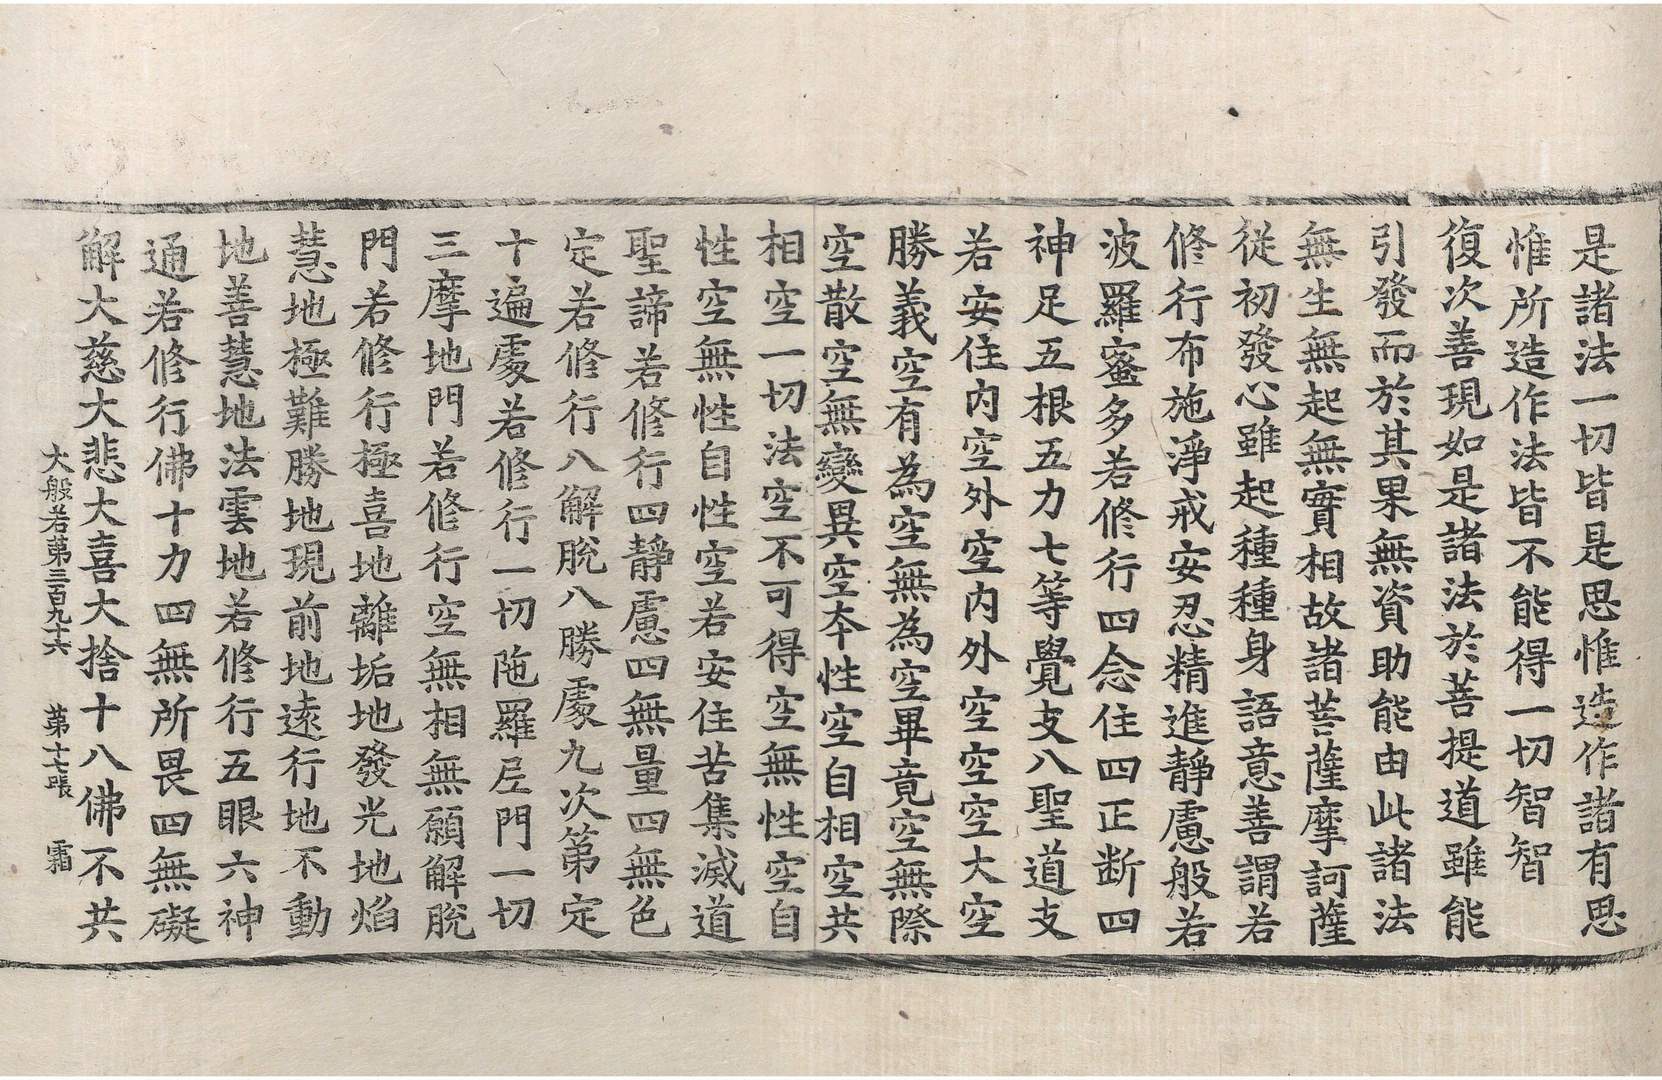 是諸法一切皆是思惟造作諸有思
惟所造作法皆不能得一切智智
復次善現如是諸法於菩提道雖能
引發而於其果無資助能由此諸法
無生無起無實相故諸菩薩摩訶薩
從初發心雖起種種身語意善謂若
修行布施淨戒安忍精進靜慮般若
波羅蜜多若修行四念住四正断四
神足五根五力七等覺支八聖道支
若安住內空外空內外空空空大空
勝義空有為空無為空畢竟空無際
空散空無變異空本性空自相空共
相空一切法空不可得空無性空自
性空無性自性空若安住苦集滅道
聖諦若修行四靜慮四無量四無色
定若修行八解脫八勝處九次第定
十遍處若修行一切陁羅尼門一切
三摩地門若修行空無相無願解脫
門若修行極喜地離垢地發光地焰
慧地極難勝地現前地遠行地不動
地善慧地法雲地若修行五眼六神
通若修行佛十力四無所畏四無礙
解大慈大悲大喜大捨十八佛不共
大般若第三百九十六 第十七張 霜